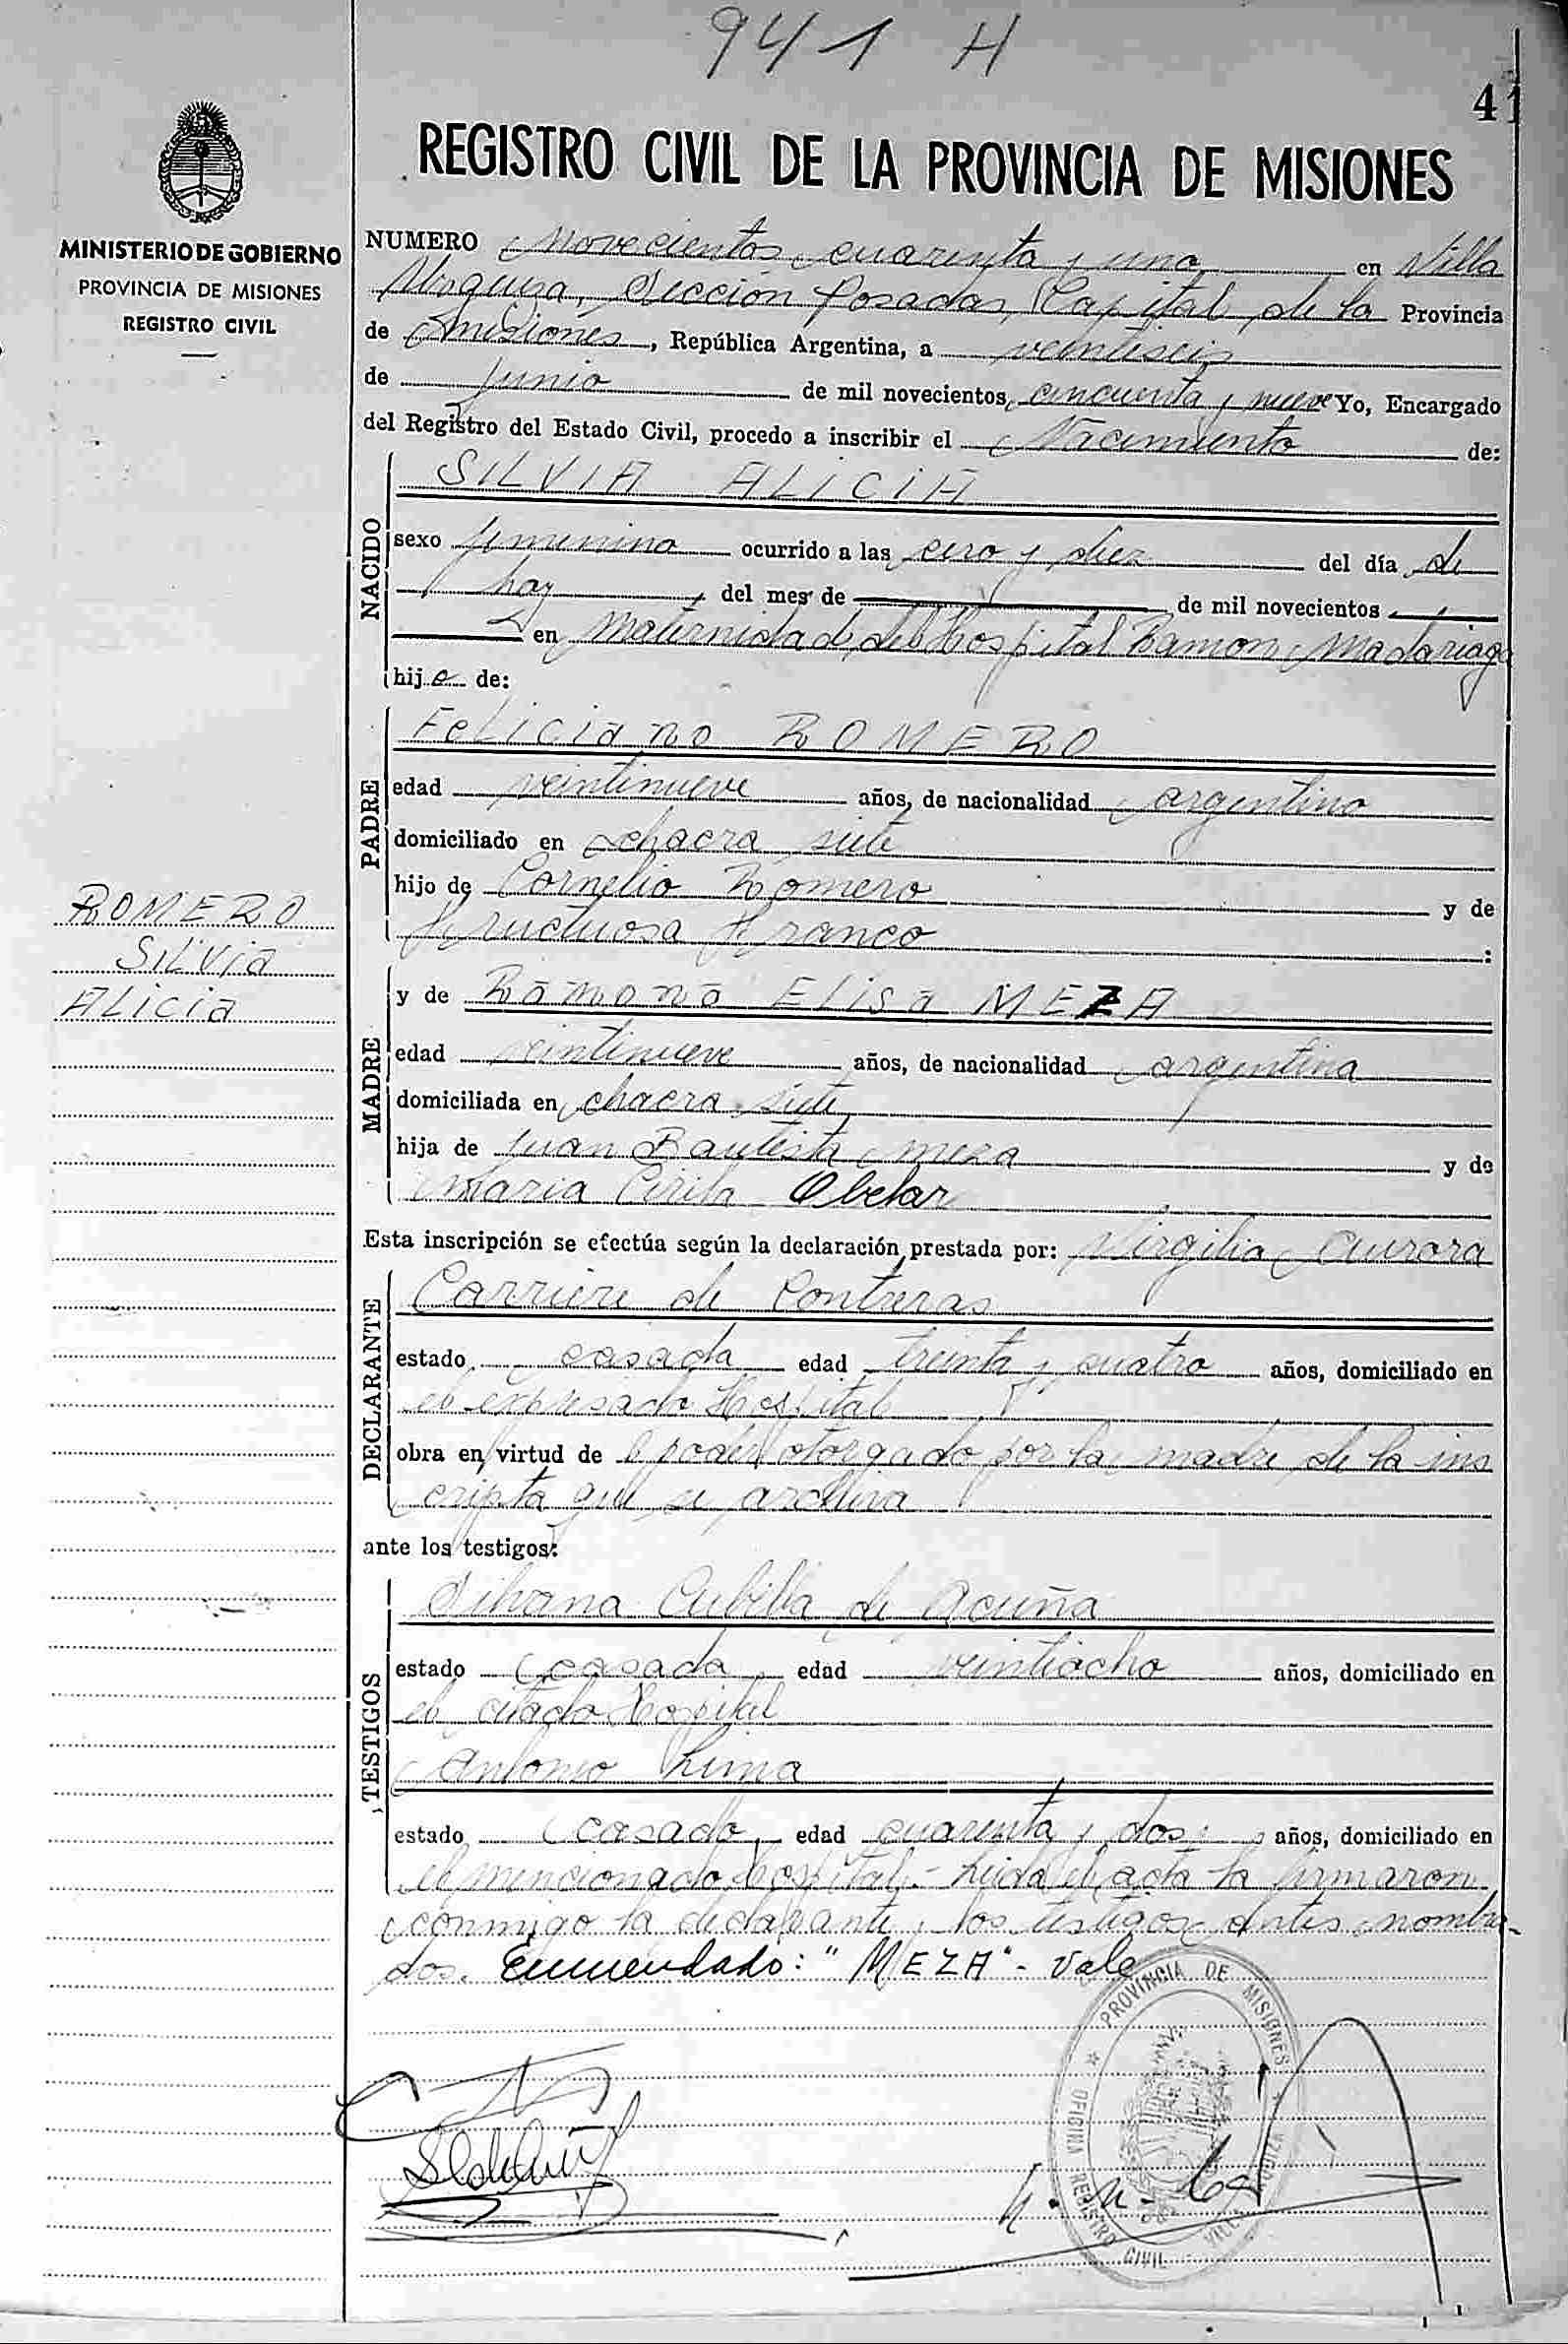 941 H
41
REGISTRO CIVIL DE LA PROVINCIA DE MISIONES
MINISTERIO DE GOBIERNO
PROVINCIA DE MISIONES
REGISTRO CIVIL
NUMERO Novecientos cuarenta y uno en Villa
Urquiza, Sección Posadas, Capital de la Provincia
de Misiones, República Argentina, a veintiseis
de Junio de mil novecientos cincuenta y nueve Yo, Encargado
del Registro del Estado Civil, procedo a inscribir el Nacimiento de:
NACIDO
SILVIA ALICIA
sexo femenino ocurrido a las cero y diez del día de
hoy del mes de de mil novecientos
en Maternidad del Hospital Ramon Madariaga
hija de:
PADRE
Feliciano ROMERO
edad veintinueve años, de nacionalidad argentino
domiciliado en chacra siete
hijo de Cornelio Romero y de
Fructuosa Franco :
ROMERO
SILVIA
ALICIA
MADRE
y de Ramona Elisa MEZA
edad veintinueve años, de nacionalidad argentina
domiciliada en chacra siete
hija de Juan Bautista Meza y de
Maria Cirila Obelar
Esta inscripción se efectúa según la declaración prestada por: Virgilia Aurora
DECLARANTE
Carriere de Contreras
estado casada edad treinta y cuatro años, domiciliado en
el expresado Hospital
obra en virtud de el poder otorgado por la madre de la ins
cripta que se archiva
ante los testigos:
TESTIGOS
Silvana Cubilla de Acuña
estado casada edad veintiocho años, domiciliado en
el citado Hospital
Antonio Lima
estado casado edad cuarenta y dos años, domiciliado en
el mencionado Hospital.- Leida el acta la firmaron
conmigo la declarante y los testigos antes nombra
dos. Enmendado: "MEZA"- Vale
PROVINCIA DE MISIONES
OFICINA REGISTRO CIVIL